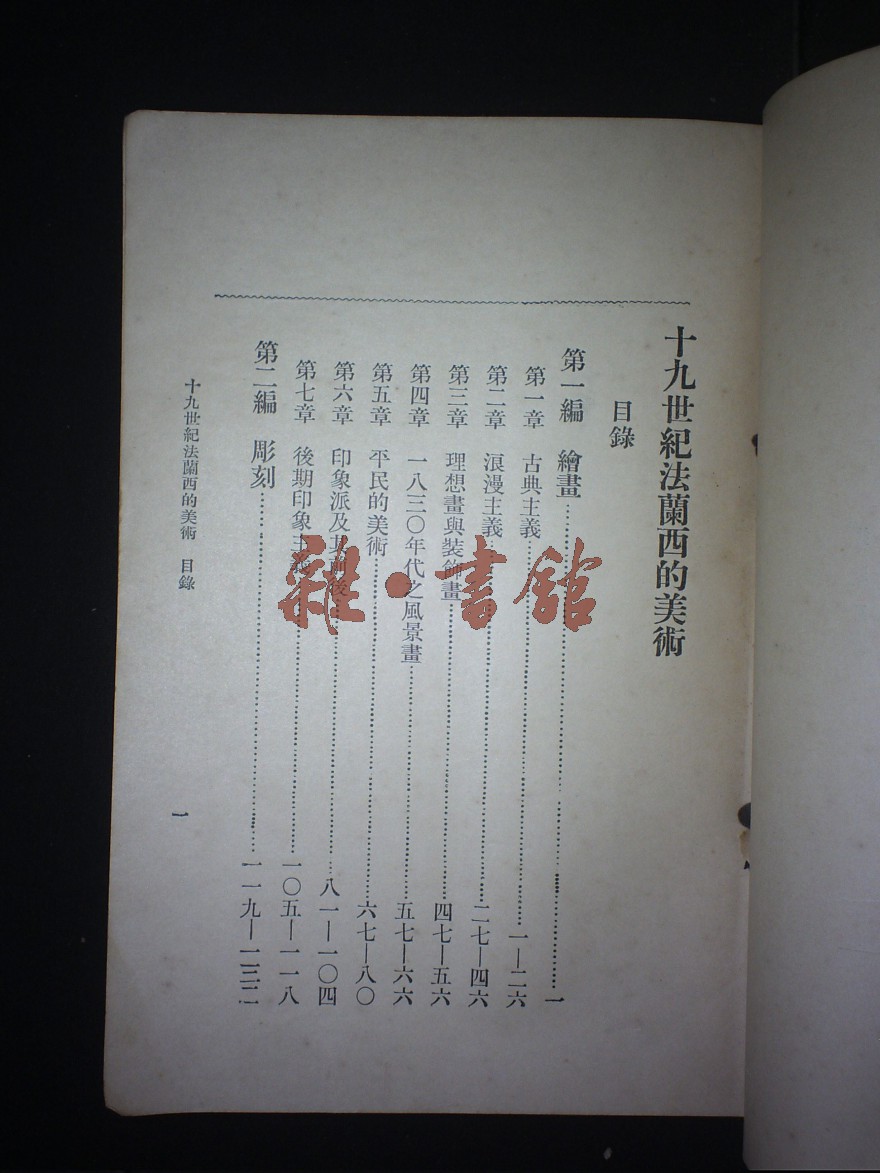 十九世紀法蘭西的美術
目錄
第一編　繪畫……一
第一章　古典主義……一—二六
第二章　浪漫主義……二七—四六
第三章　理想畫與裝飾畫……四七—五六
第四章　一八三〇年代之風景畫……五七—六六
第五章　平民的美術……六七—八〇
第六章　印象派及其前後……八一—一〇四
第七章　後期印象主義……一〇五—一一八
第二編　彫刻……一一九—一三二
十九世紀法蘭西的美術　目錄
一
雜·書館